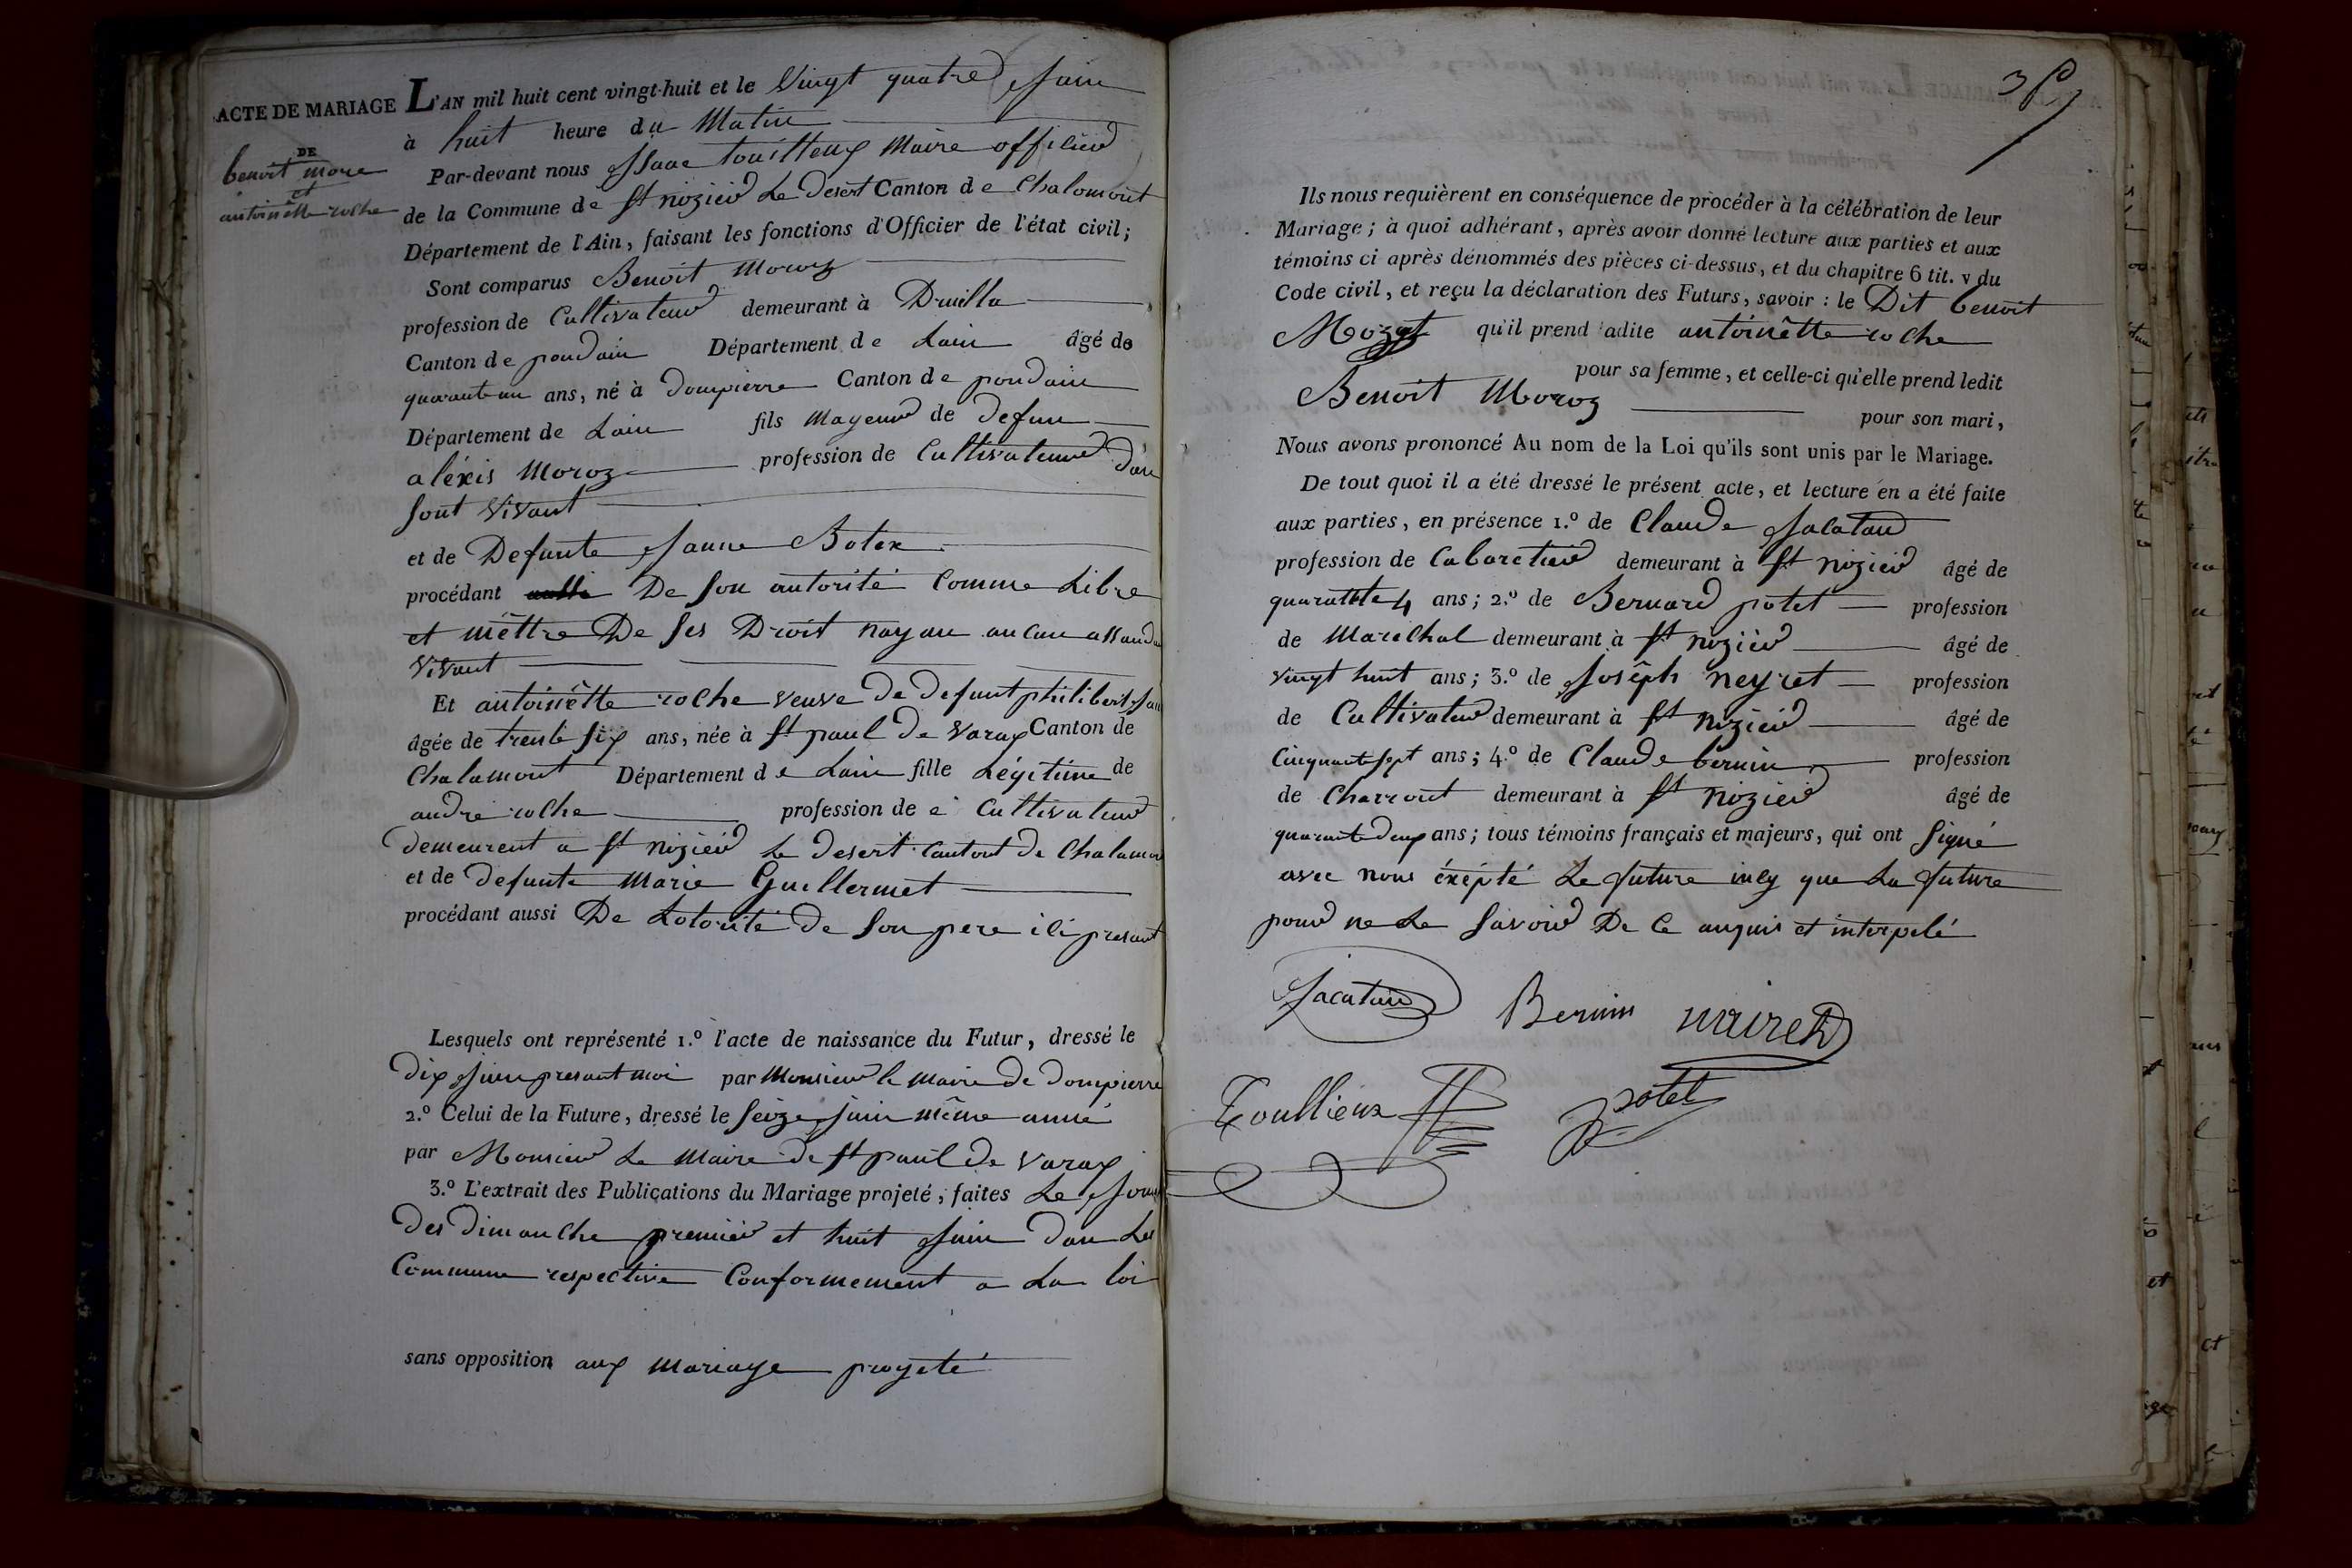 ACTE DE MARIAGE
DE
benoit more
et
antoinêtte roche
L'AN mil huit cent vingt-huit et le Vingt quatre Juin
à huit heure du Matin
Par-devant nous Isaac touilleux Maire officier
de la Commune de St nizier Le Desert Canton de Chalamont
Département de l'Ain, faisant les fonctions d'Officier de l'état civil;
Sont comparus Benoit Moroz
profession de Cultivateur demeurant à Druilla
Canton de pondain Département de Lain âgé de
quarante un ans, né à Dompierre Canton de pondain
Département de Lain fils Mageur de Defun
aléxis Moroz profession de Cultivateur
sont vivant
et de Defunte Janne Botex
procédant De son autorité Comme Libre
et mêttre De ses Droit nayan aucun
vivant
Et antoinêtte roche veuve de defunt philibert
âgée de trente six ans, née à St paul De Varax Canton de
Chalamont Département de Lain fille Légitime de
andré roche profession de Cultivateur
demeurent a St nizier Le Desert Cantont de Chalamon
et de defunte Marie Guillermet
procédant aussi De Lotorité de son pere ici presant
Lesquels ont représenté 1.º l'acte de naissance du Futur, dressé le
Dix Juin presant moi par Monsieur le Maire De Dompierre
2.º Celui de la Future, dressé le seize juin même anné
par Monsieur Le Maire de St paul De Varax
3.º L'extrait des Publications du Mariage projeté, faites Le Jour
Des Dimanche premier et huit Juin Dan Les
Commune respective Conformement a La loi
sans opposition aux Mariage progeté
Ils nous requièrent en conséquence de procéder à la célébration de leur
Mariage; à quoi adhérant, après avoir donné lecture aux parties et aux
témoins ci après dénommés des pièces ci-dessus, et du chapitre 6 tit. v du
Code civil, et reçu la déclaration des Futurs, savoir: le Dit benoit
qu'il prend ladite antoinêtte roche
pour sa femme, et celle-ci qu'elle prend ledit
Benoit Moroz pour son mari,
Nous avons prononcé Au nom de la Loi qu'ils sont unis par le Mariage.
De tout quoi il a été dressé le présent acte, et lecture en a été faite
aux parties, en présence 1.º de Claude Jacatau
profession de Cabaretier demeurant à St nizier âgé de
quarante 4 ans; 2.º de Bernard potet profession
de Marechal demeurant à St nizier âgé de
vingt huit ans; 3.º de Josêph neyret profession
de Cultivateur demeurant à St nizier âgé de
Cinquante sept ans; 4.º de Claude bernin profession
de Charront demeurant à St nizier âgé de
quarante deux ans; tous témoins français et majeurs, qui ont signé
avec nous éxépté Le future incy que La future
pour ne Le savoir De Ce anquis et interpelé
Bernin
Toullieux potet